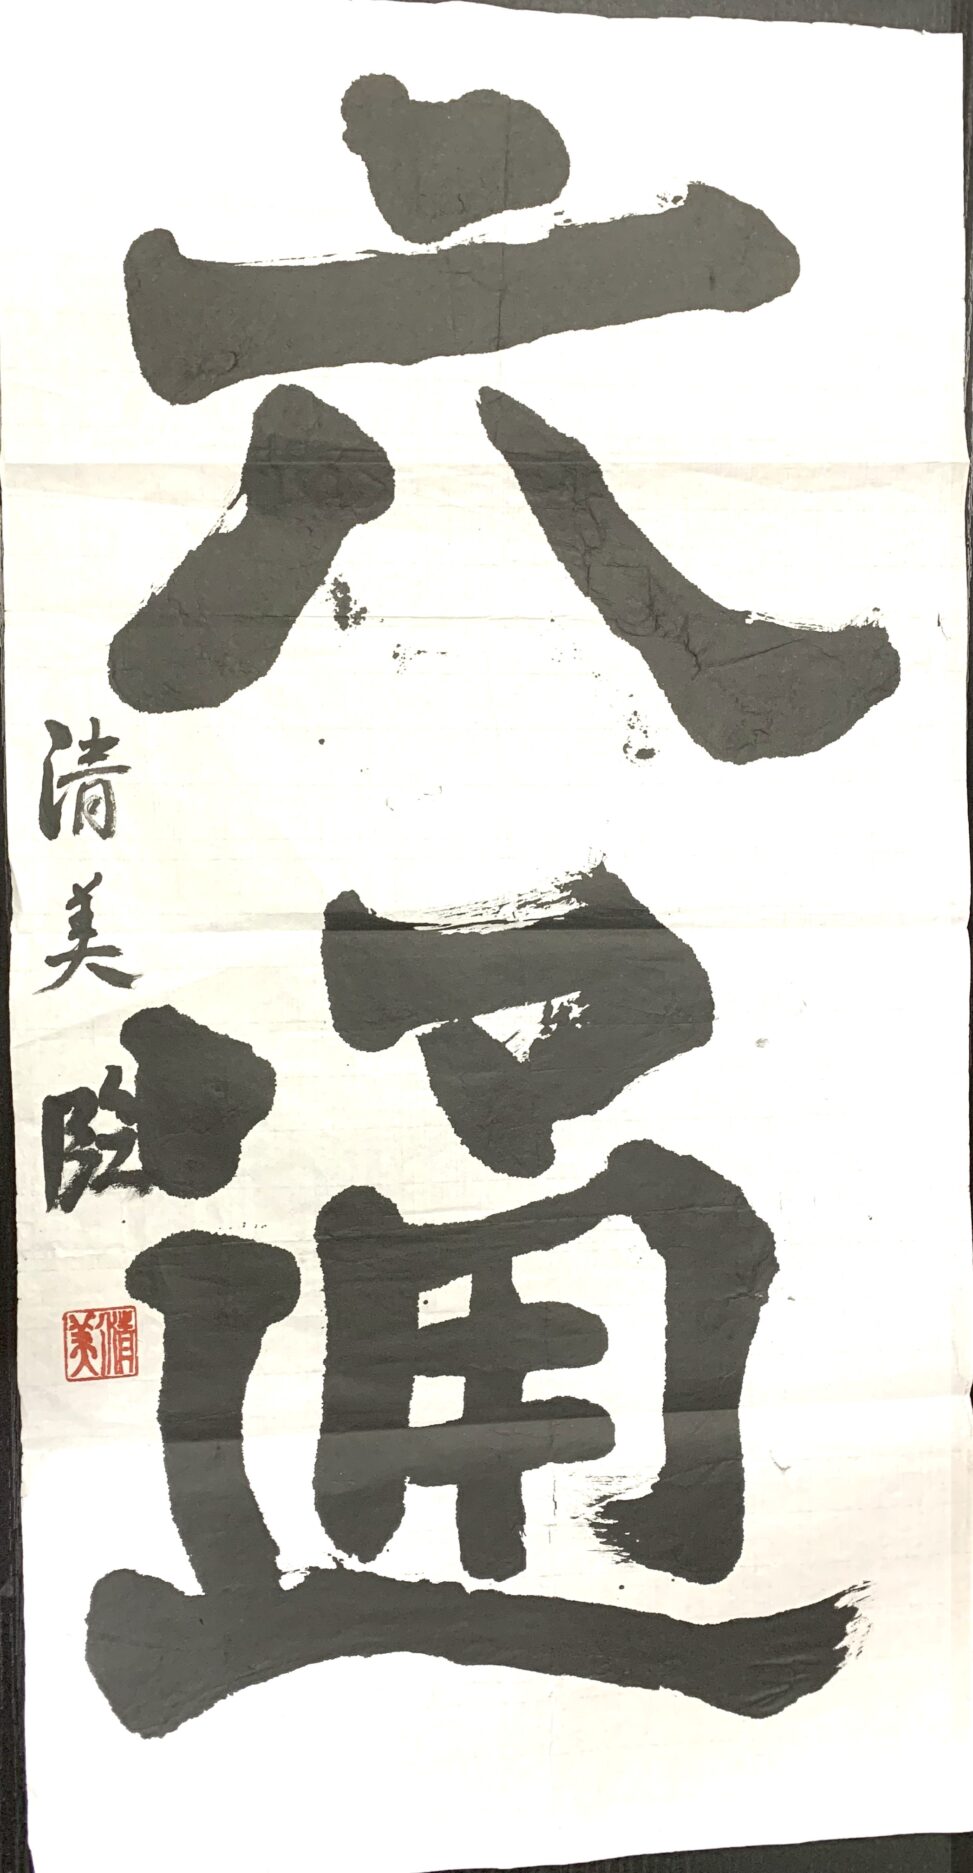 六通
清美臨
清美